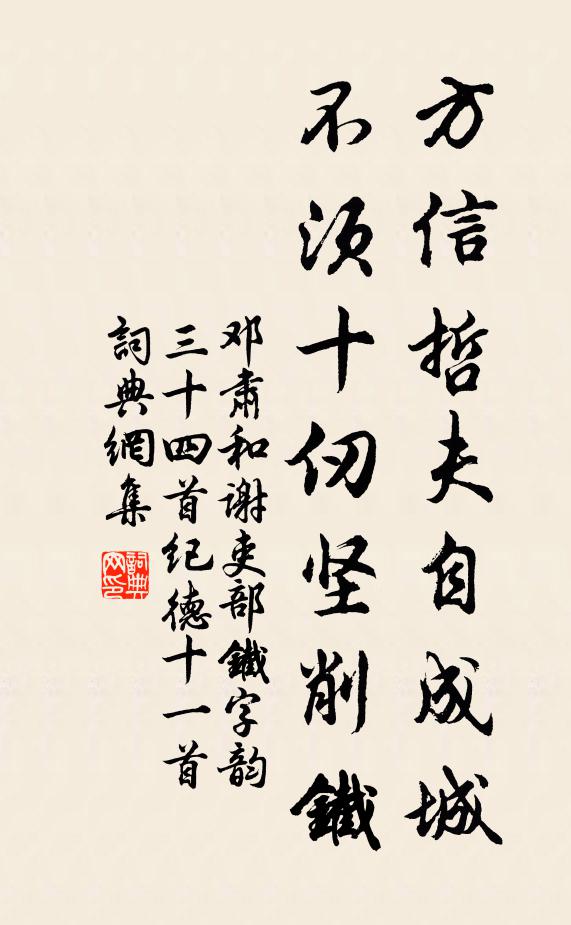 方信哲夫自成城
不须十仞坚削鐵
邓肃和谢吏部鐵字韵
三十四首纪德十一首
詞典網集
詞典网印